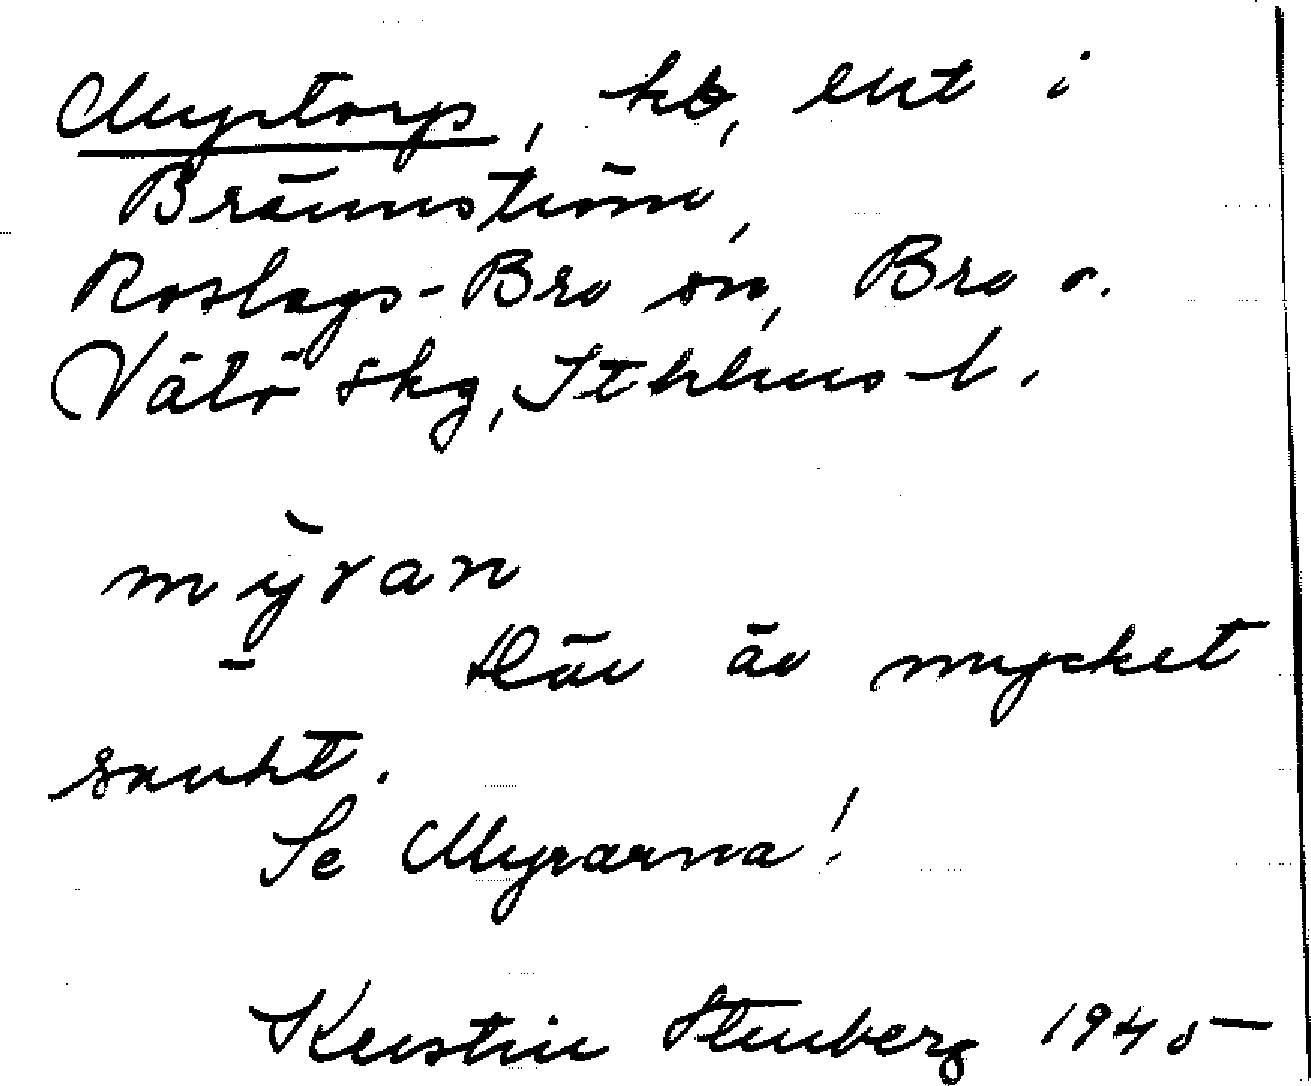 Myrtorp, hb, ent i
Brännström,
Roslags-Bro sn, Bro o.
Vätö skg, Sthlms l.
mỳran
Här är mycket
sankt.
Se Myrarna!
Kerstin Stenberg 1945